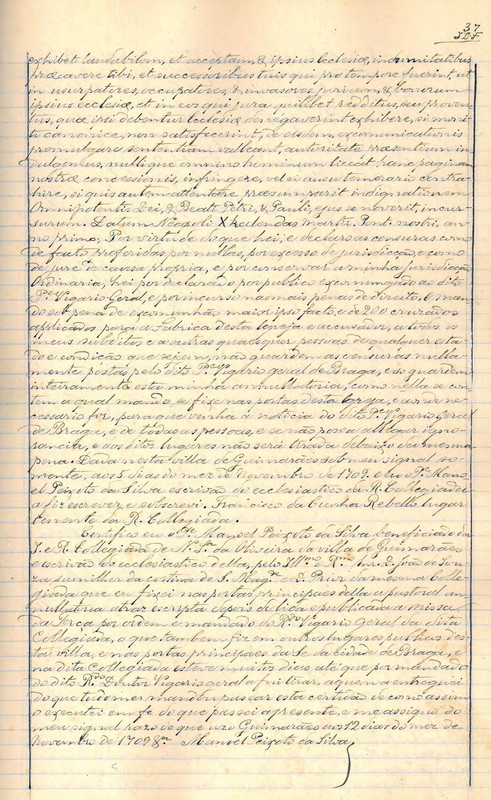 37
exhibet laudabilem, et acceptam, & ipsius ecclesiæ, indemnitatibus
præcavere tibi, et successoribus tuis qui pro tempore fuerint, ut
in usurpatores, occupatores, & invasores jurium, & bonorum
ipsius ecclesiæ, et in eos qui jura quilibet redditus, seu proven
tus, quæ ipsi debentur ecclesiæ denegaverint exhibere, si moni
ti canonice, non satisfecerint, de eisdem, excomunicationis
promulgare sententiam valeant, autoritate præsentium in
dulgemus, nulli que omnino hominum liceat hanc paginam
nostræ concessionis, infringere, vel ei ausu temerario contra
hire, si quis autem attentare præsumpserit indignationem
Omnipotentis Dei, & Beati Petri, & Pauli, ejus se noverit, incur-
surum. Datum Neapoli X kalendas Martii, Pont. nostri, an
no primo. Por virtude do que hei, e declaro as censuras como
de facto proferidas por nullas, por excesso de jurisdicção, e como
de jure in causa propria, e por conservar a minha jurisdicção
Ordinaria, hei por declarado por publico excomungado ao dito
Vigario Geral, e por incurso nas mais penas de direito. E man
do sob pena de excomunhão maior ipso facto, e de 200 cruzados
applicados para a Fabrica desta Igreja e accusador, a todos os
meus subditos, e a outras quaesquer pessoas de qualquer esta-
do e condição que sejam, não guardem as censuras nulla-
mente postas pelo dito Vigario geral de Braga, e so guardem
inteiramente esta minha annullatoria, como nella se con
tem a qual mando se fixe nas portas desta Igreja, e aonde ne-
cessario fôr, para que venha á noticia do dito Vigario Geral
de Braga, e de todas as pessoas, e se não possa allegar igno-
rancia, e dos ditos lugares não será tirada debaixo da mesma
pena. Dada nesta villa de Guimarães sob meu signal so-
mente, aos 5 dias do mez de Novembro de 1709. eu o P.e Mano
el Peixoto da Silva escrivão do ecclesiastico da R. Collegiada
a fiz escrever e subscrevi. Francisco da Cunha Rebello lugar
tenente da R. Collegiada.
Certifico eu o P.e Manoel Peixoto da Silva beneficiado da
I. e R. Collegiada de N. Sr.a da Oliveira da villa de Guimarães
e escrivão do ecclesiastico della, pelo Ill.mo e R.mo Snr. D. João de Sou-
za sumilher da cortina de S. Mag.e e D. Prior da mesma Colle
giada que eu fixei nas portas principaes della a pastoral an-
nullatoria atraz escripta depois de lida e publicada á missa
da terça por ordem e mandado do Vigario Geral da dita
Collegiada, o que tambem fiz em outros lugares publicos des
ta villa, e nas portas principaes da Sé da cidade de Braga, e
na dita Collegiada esteve muitos dias até que por mandado
do dito R.do Doutor Vigario geral a fui tirar, a quem a entreguei
do que tudo me mandou passar esta certidão de como assim
o executei em fé do que passei a presente, e me assigno do
meu signal razo de que uzo Guimarães aos 12 dias do mez de
Novembro de 1709 Manoel Peixoto da Silva